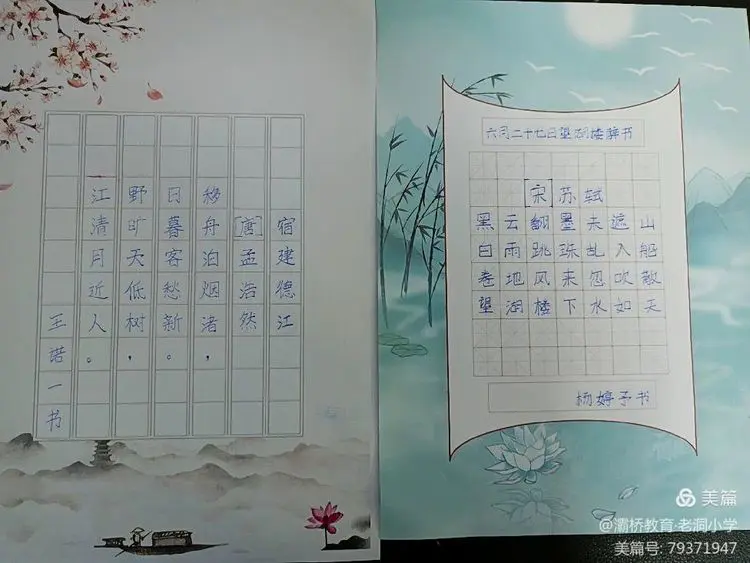 宿建德江
[唐]孟浩然
移舟泊烟渚，
日暮客愁新。
野旷天低树，
江清月近人。
王诺一书
六月二十七日望湖楼醉书
[宋]苏轼
黑云翻墨未遮山
白雨跳珠乱入船
卷地风来忽吹散
望湖楼下水如天
杨婷予书
美篇
@灞桥教育·老洞小学
美篇号: 79371947